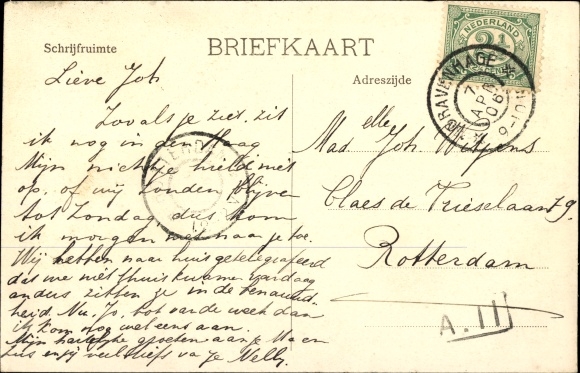 Schrijfruimte
BRIEFKAART
Adreszijde
NEDERLAND
'S GRAVENHAGE
7 APR 06
Lieve Joh
Zooals je ziet, zit
ik nog in den Haag
Mijn nichtje hield niet
op, of wij zouden blijven
tot Zondag dus kom
ik morgen niet naar je toe.
Wij hebben naar huis getelegrafeerd
dat we niet thuis kwamen vandaag
anders zitten ze in de benauwd-
heid. Nu, Jo, tot van de week dan
ik kom nog wel eens aan.
Mijn hartelijke groeten aan je Ma en
zus en jij veel liefs van je Nelly.
Mad elle Joh. Witjens
Claes de Vrieselaan 79
Rotterdam
A. II